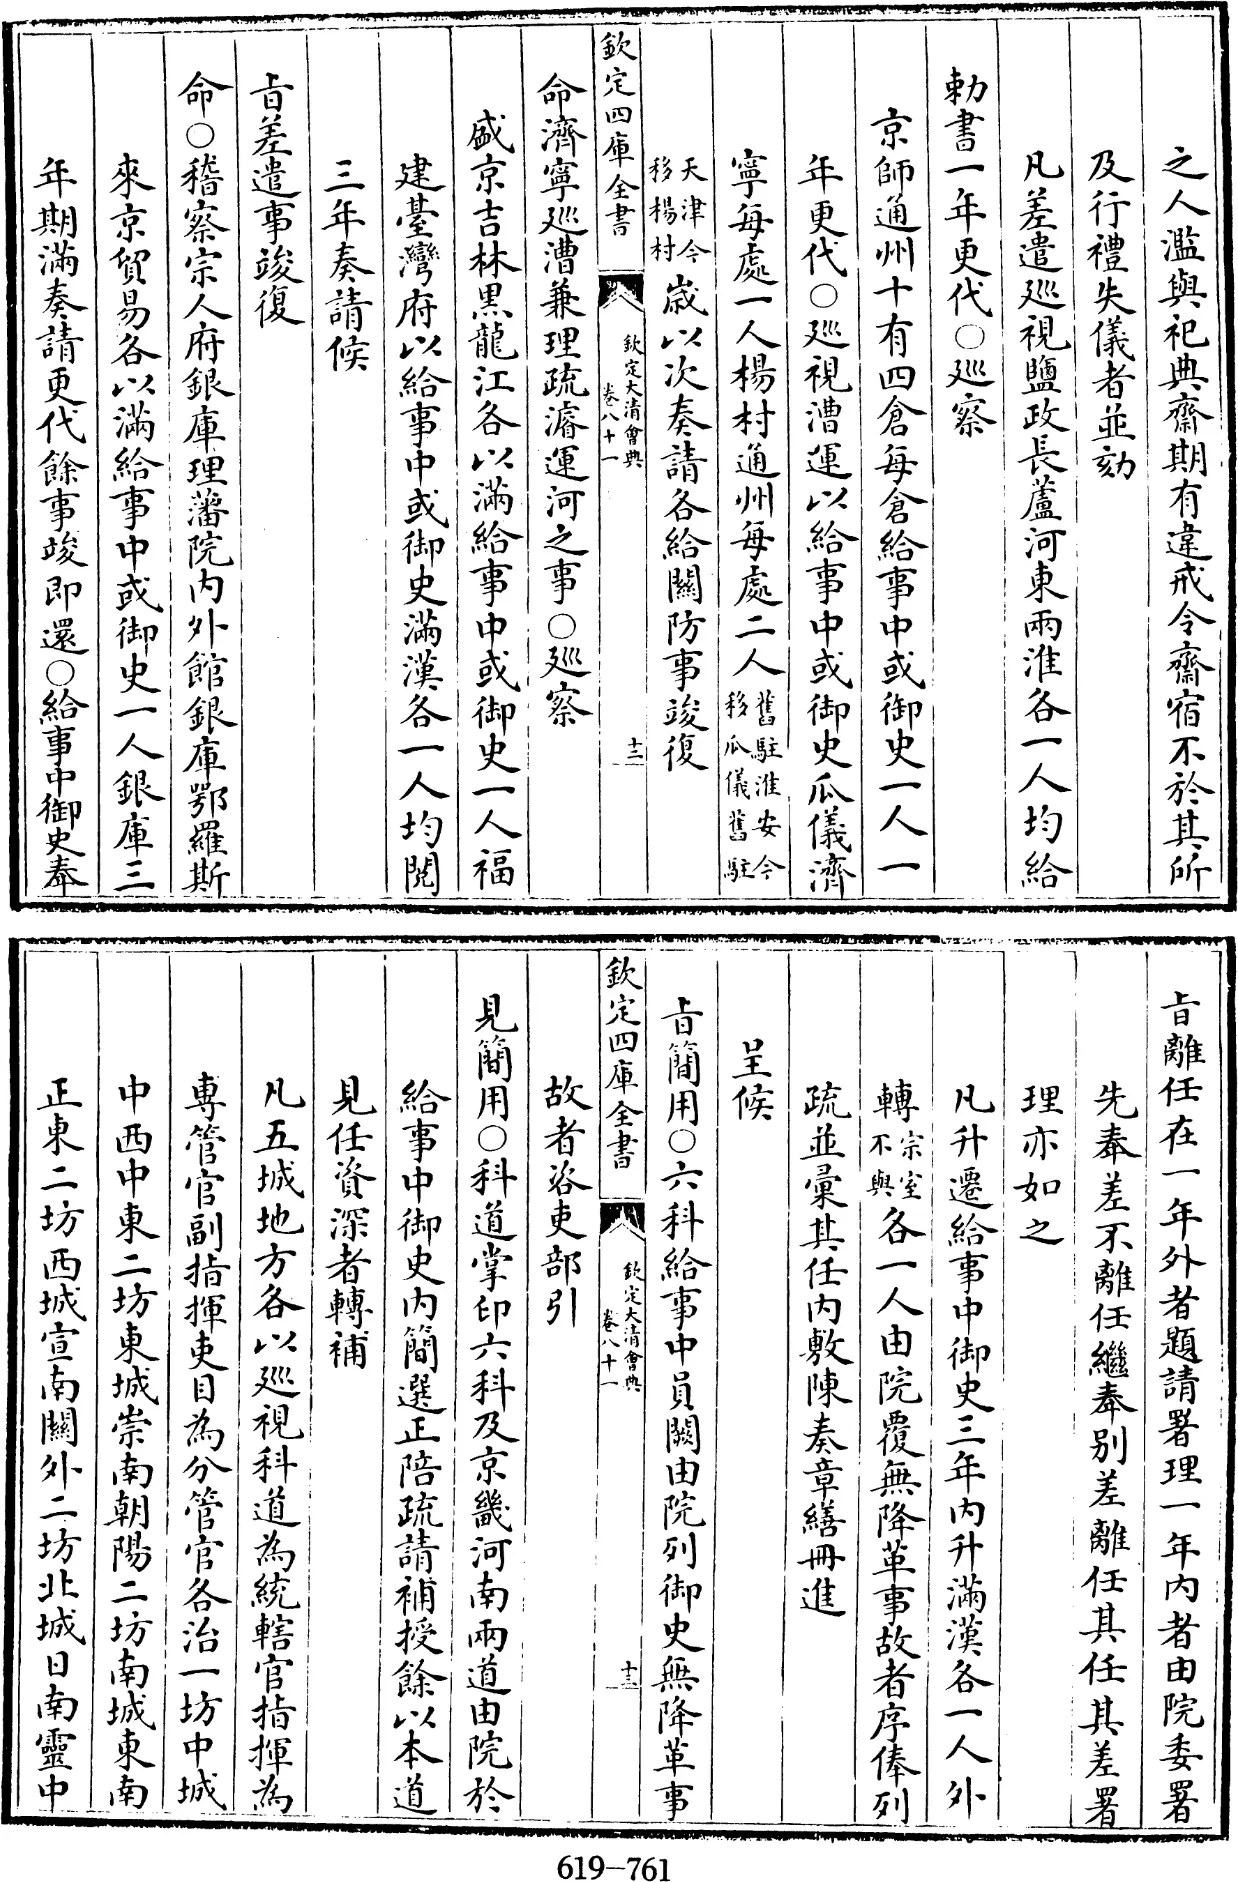 之人濫與祀典齋期有違戒令齋宿不於其所
及行禮失儀者並劾
凡差遣廵視鹽政長蘆河東兩淮各一人均給
勅書一年更代○廵察
京師通州十有四倉每倉給事中或御史一人一
年更代○廵視漕運以給事中或御史瓜儀濟
寧每處一人楊村通州每處二人舊駐淮安今移瓜儀舊駐
天津今移楊村歲以次奏請各給關防事竣復
欽定四庫全書 欽定大清會典卷八十一 十二
命濟寧廵漕兼理疏濬運河之事○廵察
盛京吉林黑龍江各以滿給事中或御史一人福
建臺灣府以給事中或御史滿漢各一人均閱
三年奏請候
旨差遣事竣復
命○稽察宗人府銀庫理藩院內外館銀庫鄂羅斯
來京貿易各以滿給事中或御史一人銀庫三
年期滿奏請更代餘事竣即還○給事中御史奉
旨離任在一年外者題請署理一年內者由院委署
先奉差不離任繼奉別差離任其任其差署
理亦如之
凡升遷給事中御史三年內升滿漢各一人外
轉宗室不與各一人由院覆無降革事故者序俸列
疏並彙其任內敷陳奏章繕冊進
呈候
旨簡用○六科給事中員闕由院列御史無降革事
欽定四庫全書 欽定大清會典卷八十一 十三
故者咨吏部引
見簡用○科道掌印六科及京畿河南兩道由院於
給事中御史內簡選正陪疏請補授餘以本道
見任資深者轉補
凡五城地方各以廵視科道為統轄官指揮為
專管官副指揮吏目為分管官各治一坊中城
中西中東二坊東城崇南朝陽二坊南城東南
正東二坊西城宣南關外二坊北城日南靈中
619-761